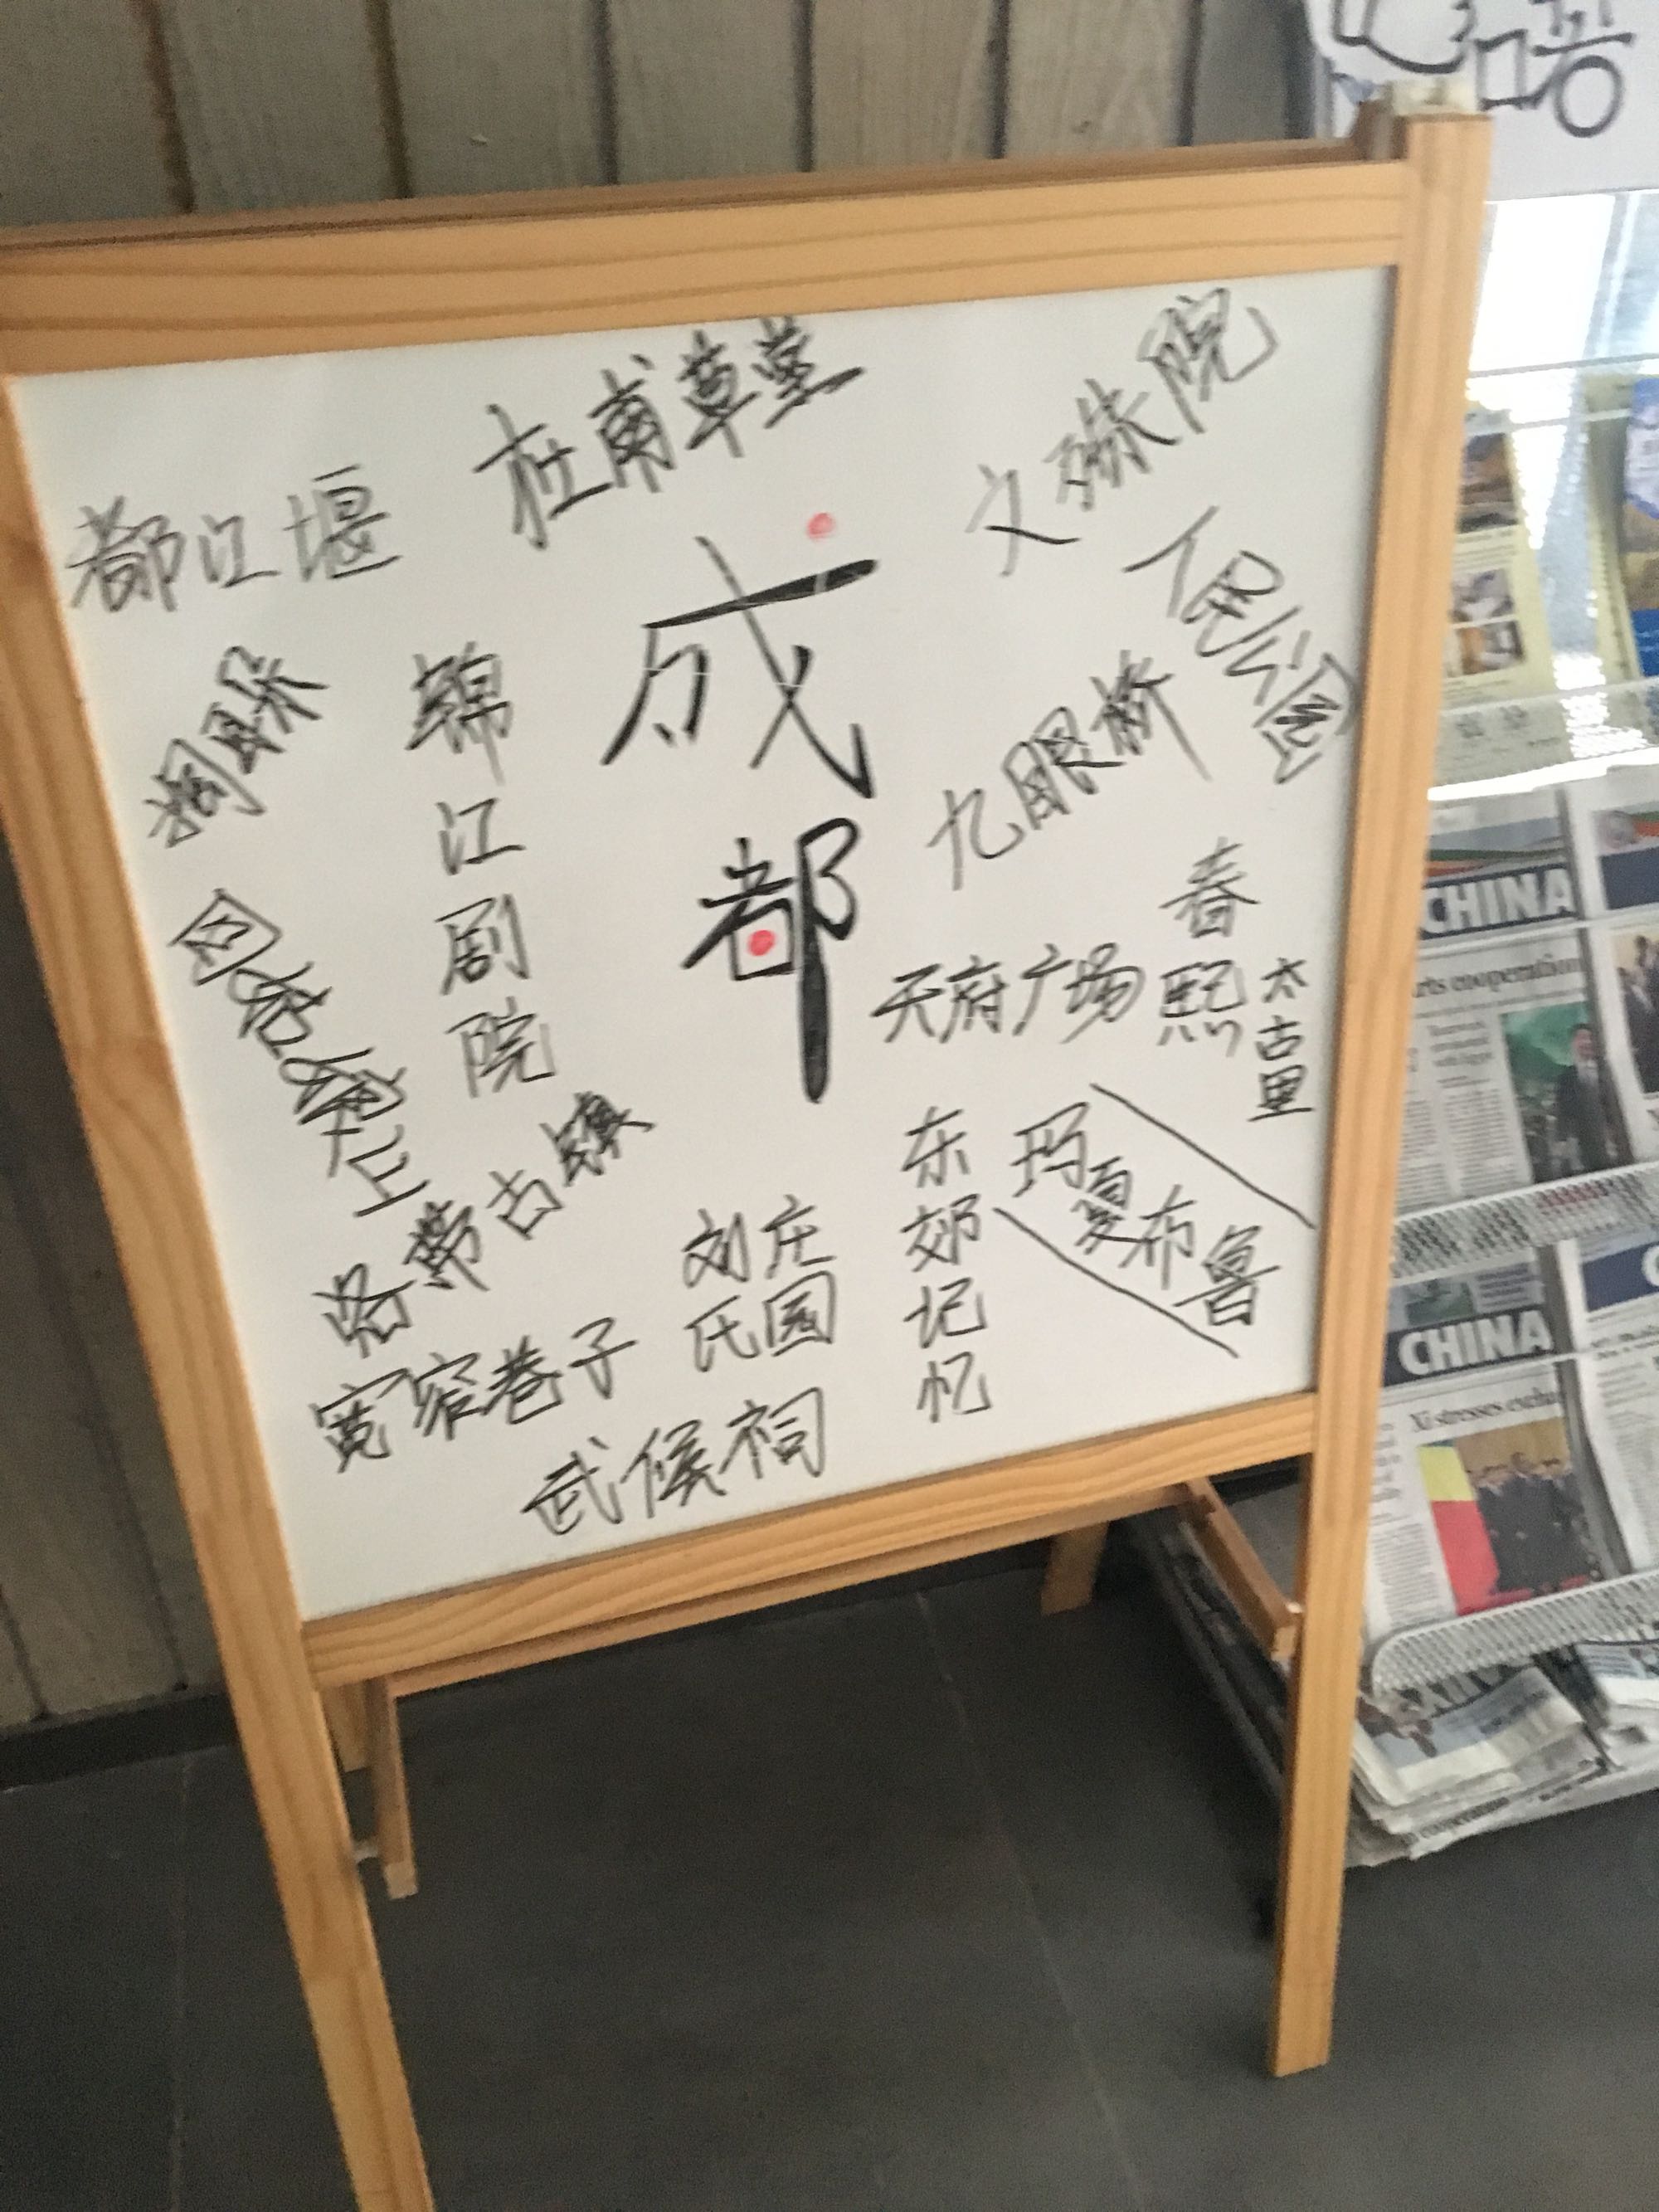 杜甫草堂
文殊院
都江堰
成都
人民公园
掏耳朵
锦江剧院
九眼桥
春熙
天府广场
太古里
洛带古镇
东郊记忆
玛夏布鲁
刘氏
庄园
宽窄巷子
武侯祠
CHINA
arts cooperation
CHINA
Xi stresses